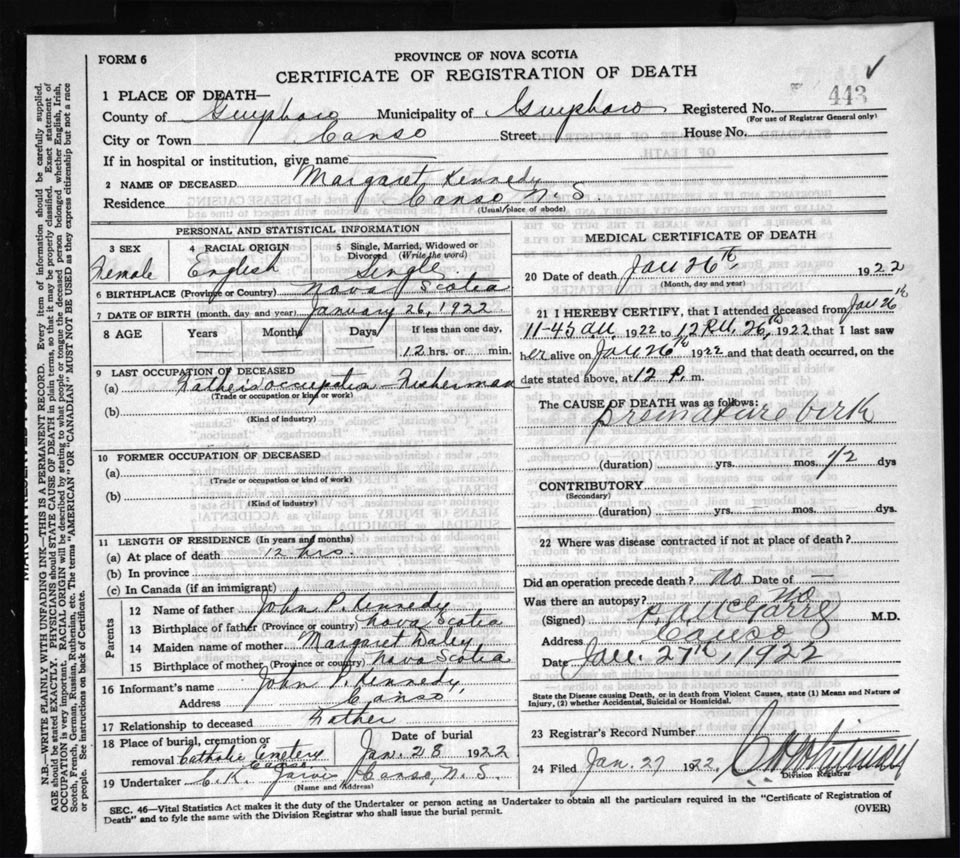 FORM 6
PROVINCE OF NOVA SCOTIA
CERTIFICATE OF REGISTRATION OF DEATH
443
1 PLACE OF DEATH—
County of Guysboro Municipality of Guysboro Registered No.
(For use of Registrar General only)
City or Town Canso Street House No.
If in hospital or institution, give name
2 NAME OF DECEASED Margaret Kennedy
Residence Canso N. S.
(Usual place of abode)
PERSONAL AND STATISTICAL INFORMATION
3 SEX 4 RACIAL ORIGIN 5 Single, Married, Widowed or Divorced (Write the word)
Female English Single
6 BIRTHPLACE (Province or Country) Nova Scotia
7 DATE OF BIRTH (month, day and year) January 26, 1922
8 AGE Years Months Days If less than one day,
12 hrs. or min.
9 LAST OCCUPATION OF DECEASED
(a) Father's occupation - Fisherman
(Trade or occupation or kind of work)
(b)
(Kind of industry)
10 FORMER OCCUPATION OF DECEASED
(a)
(Trade or occupation or kind of work)
(b)
(Kind of industry)
11 LENGTH OF RESIDENCE (In years and months)
(a) At place of death 12 hrs.
(b) In province
(c) In Canada (if an immigrant)
Parents
12 Name of father John P. Kennedy
13 Birthplace of father (Province or country) Nova Scotia
14 Maiden name of mother Margaret Daley
15 Birthplace of mother (Province or country) Nova Scotia
16 Informant's name John P. Kennedy
Address Canso,
17 Relationship to deceased Father
18 Place of burial, cremation or removal Catholic Cemetery Canso
Date of burial Jan. 28 1922
19 Undertaker C. K. Canso, N. S.
(Name and Address)
MEDICAL CERTIFICATE OF DEATH
20 Date of death Jan 26th 1922
(Month, day and year)
21 I HEREBY CERTIFY, that I attended deceased from Jan 26th
11-45 1922 to 12 26th, 1922 that I last saw
her alive on Jan 26th 1922 and that death occurred, on the
date stated above, at 12 P. m.
The CAUSE OF DEATH was as follows:
Premature birth
(duration) yrs. mos. 1/2 dys
CONTRIBUTORY
(Secondary)
(duration) yrs. mos. dys.
22 Where was disease contracted if not at place of death?
Did an operation precede death? No Date of —
Was there an autopsy? no
(Signed) M.D.
Address Canso
Date Jan. 27th, 1922
State the Disease causing Death, or in death from Violent Causes, state (1) Means and Nature of
Injury, (2) whether Accidental, Suicidal or Homicidal.
23 Registrar's Record Number
24 Filed Jan. 27 1922
Division Registrar
SEC. 46—Vital Statistics Act makes it the duty of the Undertaker or person acting as Undertaker to obtain all the particulars required in the "Certificate of Registration of
Death" and to fyle the same with the Division Registrar who shall issue the burial permit.
(OVER)
N.B.—WRITE PLAINLY WITH UNFADING INK—THIS IS A PERMANENT RECORD. Every item of information should be carefully supplied.
AGE should be stated EXACTLY. PHYSICIANS should STATE CAUSE OF DEATH in plain terms, so that it may be properly classified. Exact statement of
OCCUPATION is very important. RACIAL ORIGIN will be described by stating to what people or tongue the deceased person belonged whether English, Irish,
Scotch, French, German, Russian, Ruthenian, etc. The terms "AMERICAN" OR "CANADIAN" MUST NOT BE USED as they express citizenship but not a race
or people. See instructions on back of Certificate.